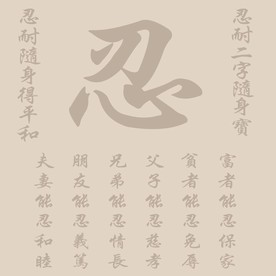 忍耐二字隨身寶
忍
忍耐隨身得平和
富者能忍保家
貧者能忍免辱
父子能忍慈孝
兄弟能忍情長
朋友能忍義篤
夫妻能忍和睦